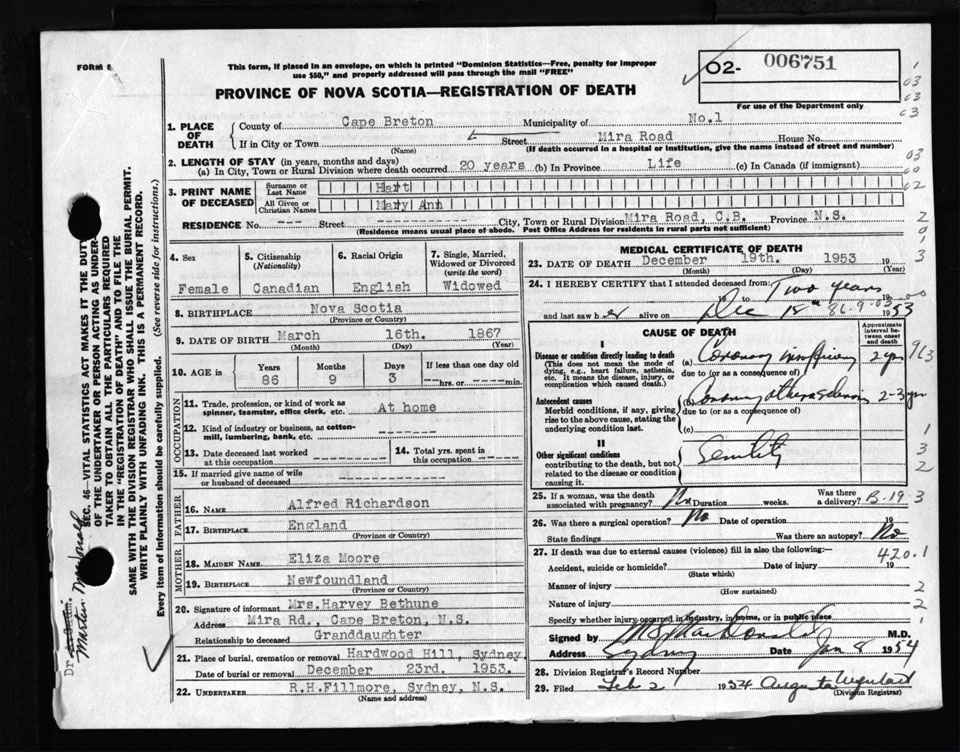 FORM 6
This form, if placed in an envelope, on which is printed "Dominion Statistics—Free, penalty for improper
use $50," and properly addressed will pass through the mail "FREE"
O2- 006751
For use of the Department only
PROVINCE OF NOVA SCOTIA—REGISTRATION OF DEATH
1. PLACE OF DEATH County of Cape Breton Municipality of No.1
If in City or Town Street Mira Road House No.
(Name) (If death occurred in a hospital or institution, give the name instead of street and number)
2. LENGTH OF STAY (in years, months and days)
(a) In City, Town or Rural Division where death occurred 20 years (b) In Province Life (c) In Canada (if immigrant)
3. PRINT NAME OF DECEASED
Surname or Last Name Hart
All Given or Christian Names Mary Ann
RESIDENCE No. Street City, Town or Rural Division Mira Road, C.B. Province N.S.
(Residence means usual place of abode. Post Office Address for residents in rural parts not sufficient)
4. Sex
Female
5. Citizenship (Nationality)
Canadian
6. Racial Origin
English
7. Single, Married, Widowed or Divorced (write the word)
Widowed
8. BIRTHPLACE Nova Scotia
(Province or Country)
9. DATE OF BIRTH March 16th. 1867
(Month) (Day) (Year)
10. AGE in Years Months Days If less than one day old
86 9 3 hrs. or min.
OCCUPATION
11. Trade, profession, or kind of work as
spinner, teamster, office clerk, etc. At home
12. Kind of industry or business, as cotton-
mill, lumbering, bank, etc.
13. Date deceased last worked
at this occupation
14. Total yrs. spent in
this occupation
15. If married give name of wife
or husband of deceased
FATHER
16. NAME Alfred Richardson
17. BIRTHPLACE England
(Province or Country)
MOTHER
18. MAIDEN NAME Eliza Moore
19. BIRTHPLACE Newfoundland
(Province or Country)
20. Signature of informant Mrs.Harvey Bethune
Address Mira Rd., Cape Breton, N.S.
Relationship to deceased Granddaughter
21. Place of burial, cremation or removal Hardwood Hill, Sydney.
Date of burial or removal December 23rd. 1953.
22. UNDERTAKER R.H.Fillmore, Sydney, N.S.
(Name and address)
MEDICAL CERTIFICATE OF DEATH
23. DATE OF DEATH December 19th. 1953 19
(Month) (Day) (Year)
24. I HEREBY CERTIFY that I attended deceased from:
Two years 19
to
and last saw her alive on Dec 18th 86-9-03 1953
CAUSE OF DEATH
Approximate interval between onset and death
Disease or condition directly leading to death
(This does not mean the mode of dying, e.g., heart failure, asthenia, etc. It means the disease, injury, or complication which caused death.)
(a) Coronary 2 yrs
due to (or as a consequence of)
Antecedent causes
Morbid conditions, if any, giving rise to the above cause, stating the underlying condition last.
(b) Coronary 2-3 yrs
due to (or as a consequence of)
(c)
II
Other significant conditions
contributing to the death, but not related to the disease or condition causing it.
Senility
25. If a woman, was the death
associated with pregnancy? No Duration weeks. Was there a delivery? B-19-3
26. Was there a surgical operation? No Date of operation 19
State findings Was there an autopsy? No
27. If death was due to external causes (violence) fill in also the following:—
420.1
Accident, suicide or homicide? Date of injury 19
(State which)
Manner of injury
(How sustained)
Nature of injury
Specify whether injury occurred in industry, in home, or in public place
Signed by MacDonald M.D.
Address Sydney Date Jan 8 1954
28. Division Registrar's Record Number
29. Filed Feb 2 1954 Augusta
(Division Registrar)
SEC. 46—VITAL STATISTICS ACT MAKES IT THE DUTY
OF THE UNDERTAKER OR PERSON ACTING AS UNDER-
TAKER TO OBTAIN ALL THE PARTICULARS REQUIRED
IN THE "REGISTRATION OF DEATH" AND TO FILE THE
SAME WITH THE DIVISION REGISTRAR WHO SHALL ISSUE THE BURIAL PERMIT.
WRITE PLAINLY WITH UNFADING INK. THIS IS A PERMANENT RECORD.
Every item of information should be carefully supplied. (See reverse side for instructions.)
Dr